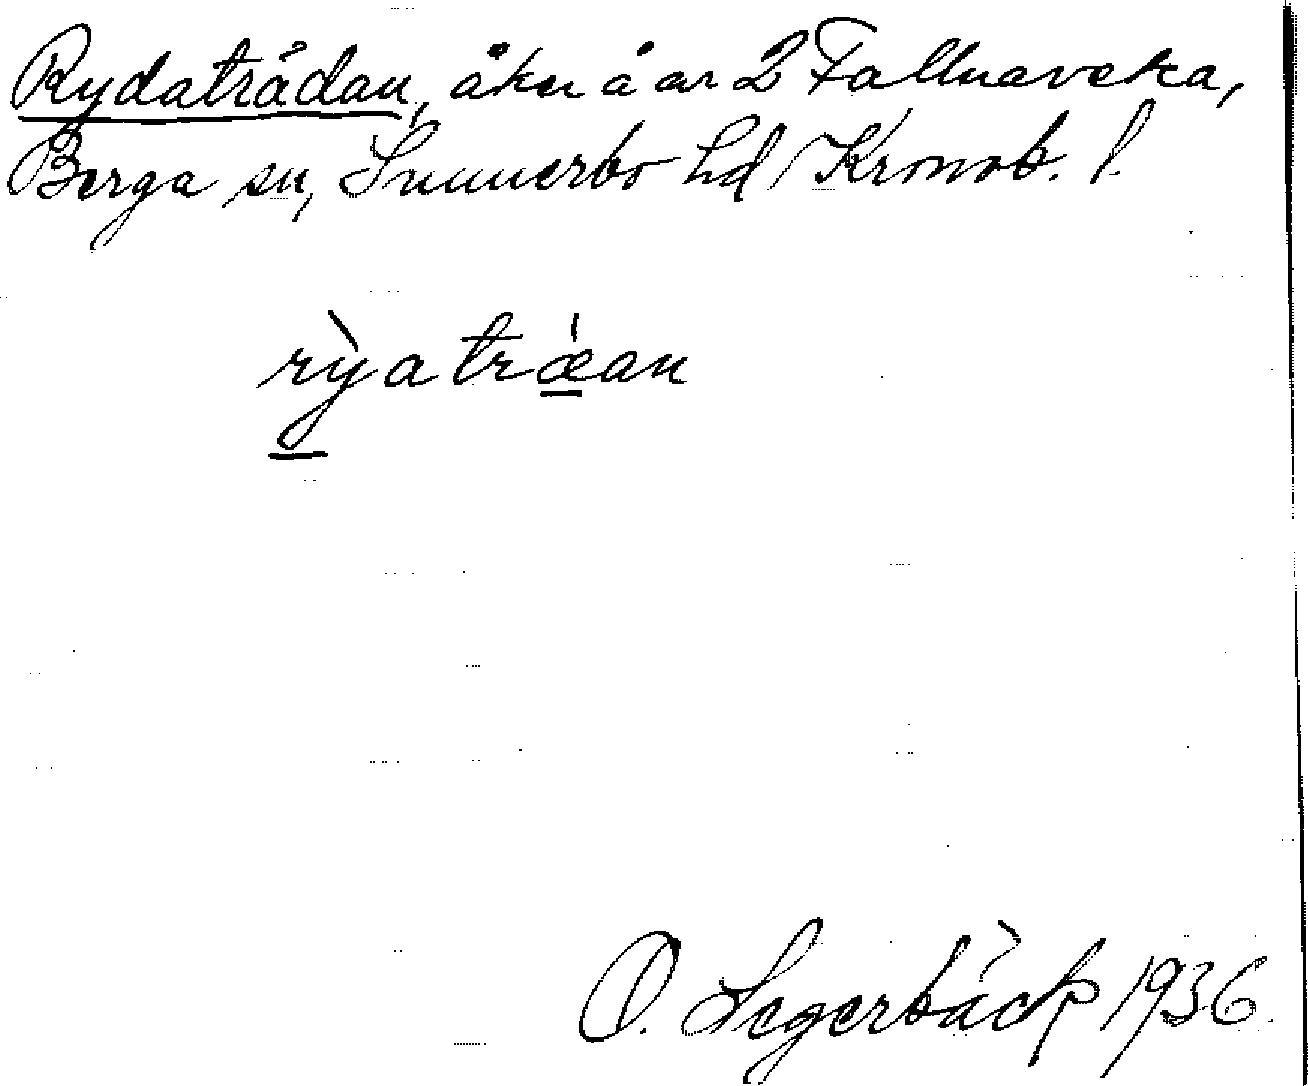 Rydaträdan, åker å ar 2 Fallnaveka,
Berga sn, Sunnerbo hd Kronob. l.
rỳatræ̍an
O. Segerbäck 1936